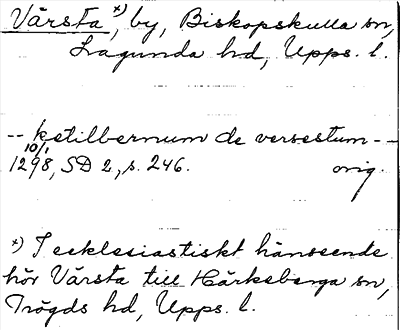 Vårsta x), by, Biskopskulla sn,
Lagunda hd, Upps. l.
-- ketilbernum de versestum --
10/1
1298, SD 2, s. 246. orig.
x) I ecklesiastiskt hänseende
hör Vårsta till Härkeberga sn,
Trögds hd, Upps. l.